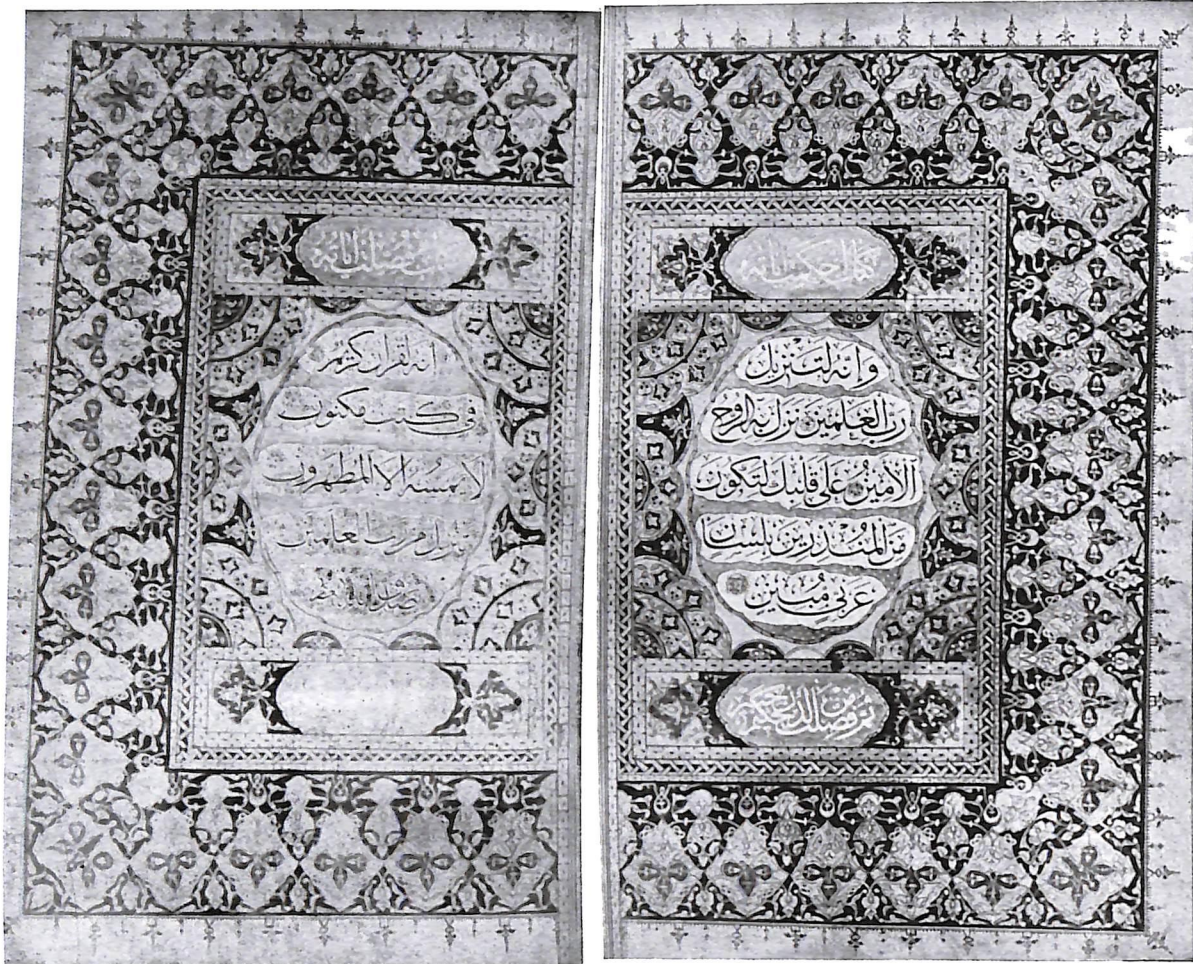 كتاب احكمت اياته
وانه لتنزيل
رب العلمين نزل به الروح
الامين على قلبك لتكون
من المنذرين بلسان
عربي مبين
ثم فصلت من لدن حكيم
كتب فصلت اياته
انه لقران كريم
في كتب مكنون
لا يمسه الا المطهرون
تنزيل من رب العلمين